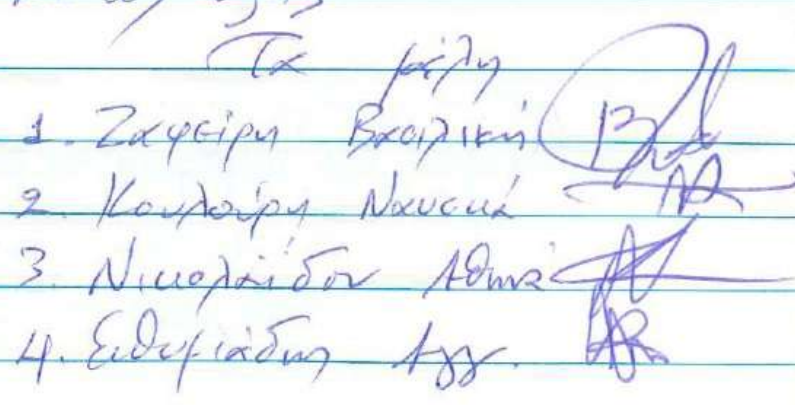 Τα μέλη
1. Ζαφείρη Βασιλική
2. Κουλούρη Ναυσικά
3. Νικολαΐδου Αθηνά
4. Ευθυμιάδης Αγγ.